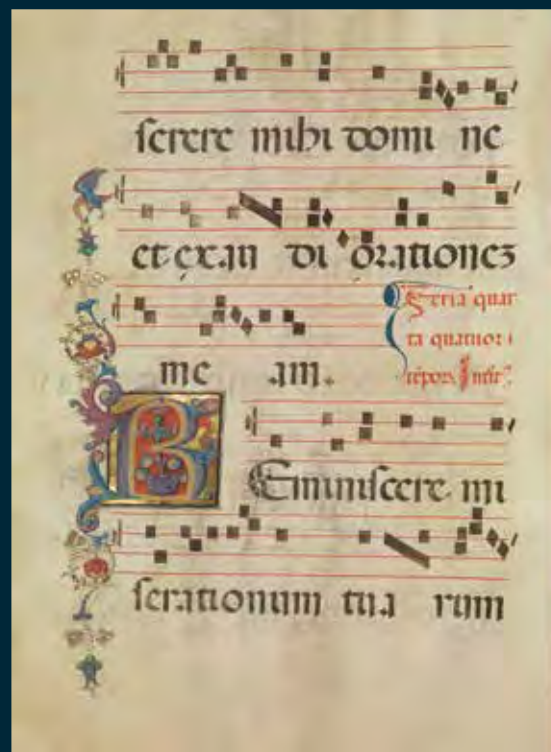 serere mihi domi ne
et exau di orationez
me am.
Feria quar
ta quatuor
tēpoꝝ. Introit.
REminiscere mi
serationum tua rum